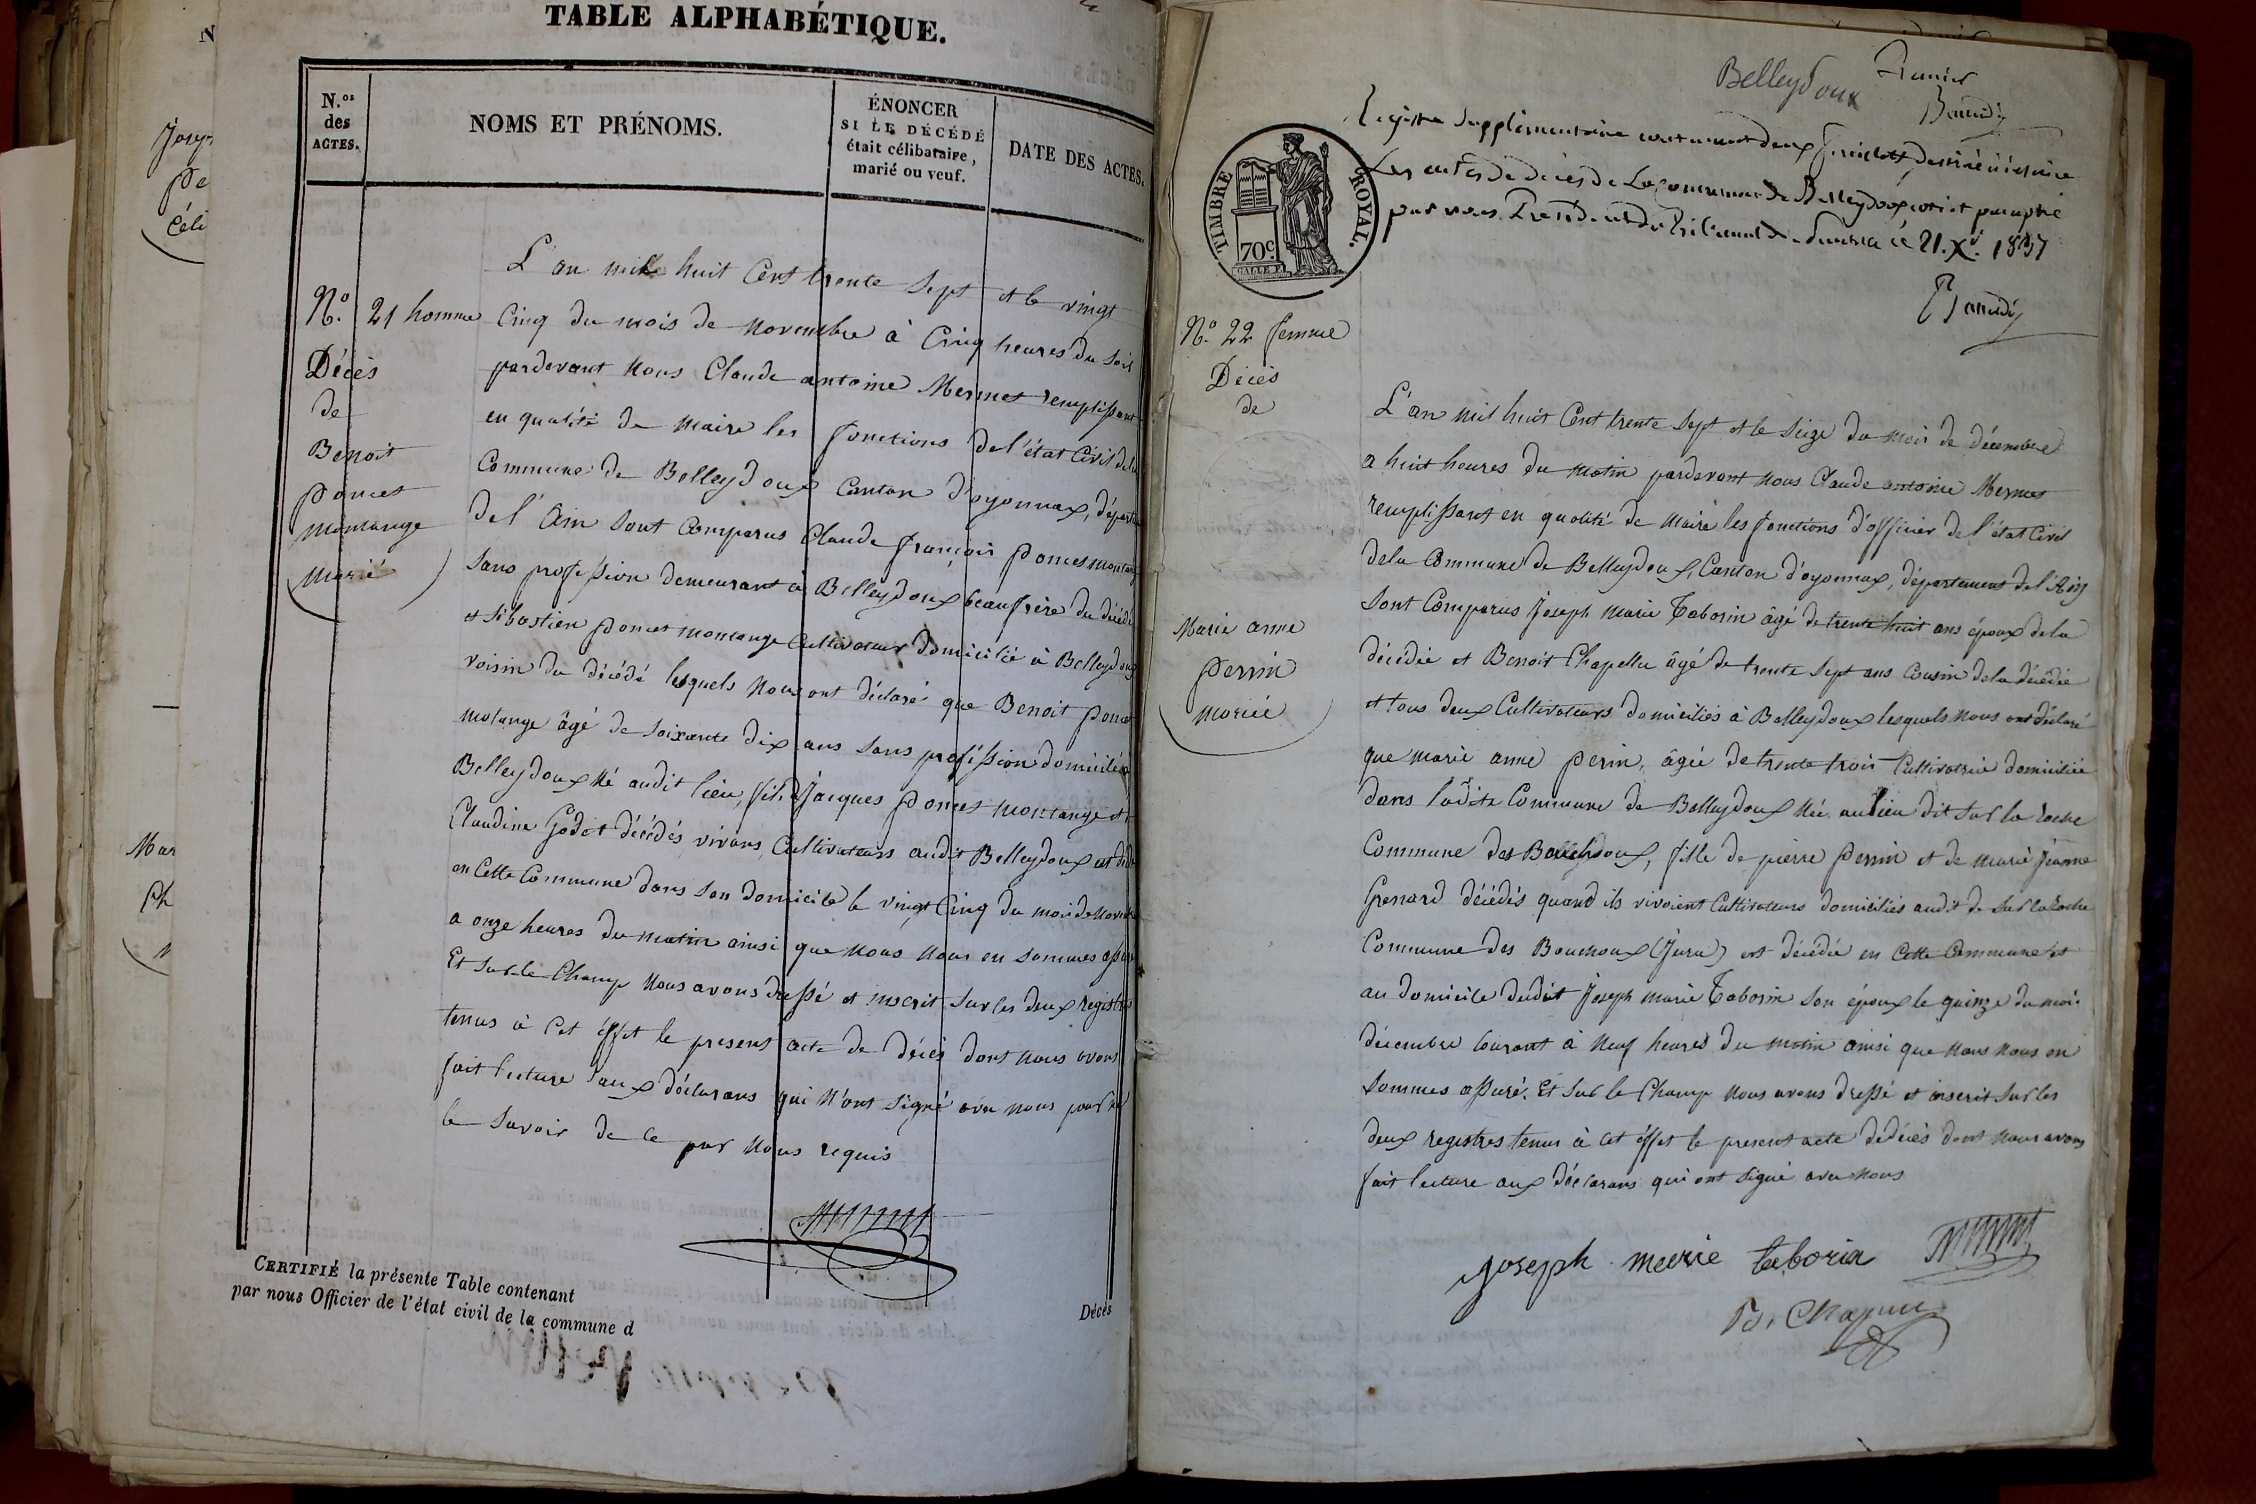 TABLE ALPHABÉTIQUE.
N.os des ACTES.
NOMS ET PRÉNOMS.
ÉNONCER
SI LE DÉCÉDÉ
était célibataire,
marié ou veuf.
DATE DES ACTES.
N.o 21 homme
Décès
de
Benoit
poncet
montange
marié
L'an mille huit Cent trente Sept et le vingt
Cinq du mois de novembre à Cinq heures du soir
pardevant nous Claude antoine Mermet remplissant
en qualité de maire les fonctions de l'état Civil de la
Commune de Belleydoux Canton d'oyonnax, départe
de l'Ain sont Comparus Claude françois poncet montang
sans profession demeurant à Belleydoux beaufrère du décédé
et sibastien poncet montange Cultivateur domicilié à Belleydoux
voisin du décédé lesquels nous ont déclaré que Benoit poncet
motange âgé de soixante dix ans sans profession domicilié à
Belleydoux né audit lieu, fils d jacques poncet montange et
Claudine Godet décédés vivans Cultivateurs audit Belleydoux est décé
en Cette Commune dans son domicile le vingt Cinq du mois de novem
a onze heures du matin ainsi que nous nous en sommes assuré
Et sur le Champ nous avons dressé et inscrit sur les deux registres
tenus à Cet éffet le present acte de décès dont nous avons
fait lecture aux déclarans qui n'ont signé avec nous pour ne
le savoir de ce par nous requis
CERTIFIÉ la présente Table contenant
par nous Officier de l'état civil de la commune d
Décès
Belleydoux
Registre supplémentaire contenant deux feuillets, destiné à inscrire
Les actes de décès de La commune de Belleydoux, coté et paraphé
par nous Président du Tribunal de Nantua le 21. Xe. 1837
TIMBRE ROYAL.
70c
N.o 22 femme
Décès
de
Marie anne
perrin
mariée
L'an mil huit Cent trente sept et le seize du mois de décembre
a huit heures du matin pardevant nous Claude antoine Mermet
remplissant en qualité de maire les fonctions d'officier de l'état Civil
de la Commune de Belleydoux, Canton d'oyonnax, département de l'Ain
sont Comparus Joseph marie Taborin âgé de trente huit ans époux de la
décédée et Benoit Chapellu âgé de trente sept ans Cousin de la décédée
et tous deux Cultivateurs domiciliés à Belleydoux lesquels nous ont déclaré
que marie anne perin, âgée de trente trois Cultivatrice domiciliée
dans ladite Commune de Belleydoux née au lieu dit sur la roche
Commune des Bouchoux, fille de pierre perrin et de marie jeanne
Grenard décédés quand ils vivoient Cultivateurs domiciliés audit de sur la Roche
Commune des Bouchoux (Jura) est décédée en Cette Commune et
au domicile dudit Joseph marie Taborin son époux le quinze du mois
décembre Courant à neuf heures du matin ainsi que nous nous en
sommes assuré. Et sur le Champ nous avons dressé et inscrit sur les
deux registres tenus à Cet éffet le present acte de décès dont nous avons
fait lecture aux déclarans qui ont signé avec nous
joseph marie taborin